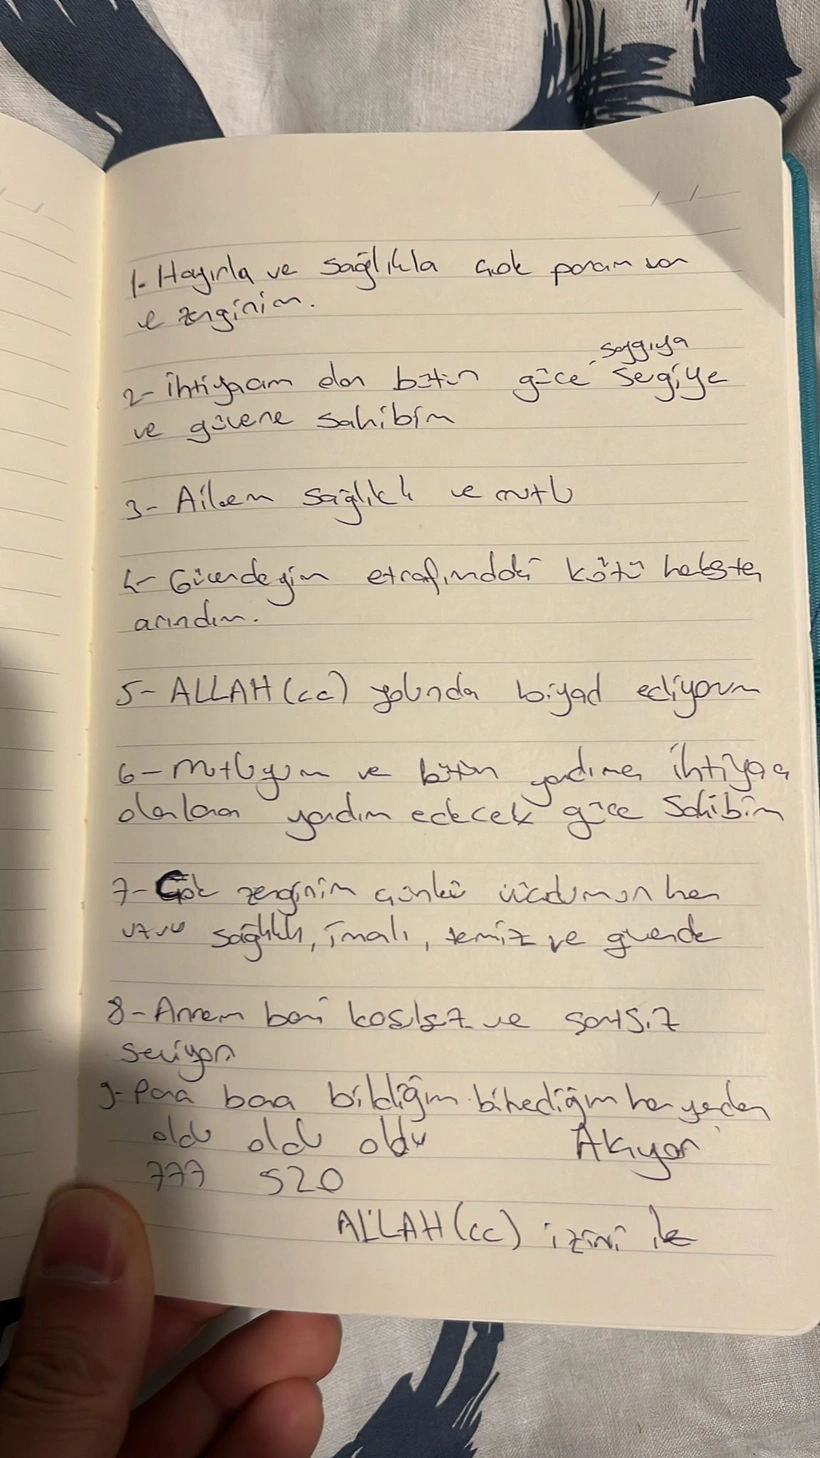 1- Hayırla ve sağlıkla çok param var
ve zenginim.
2- İhtiyacım olan bütün güce saygıya sevgiye
ve güvene sahibim
3- Ailem sağlıklı ve mutlu
4- Güvendeyim etrafımdaki kötü
arındım.
5- ALLAH (cc) yolunda ediyorum
6- mutluyum ve bütün yardıma ihtiyacı
olanlara yardım edecek güce sahibim
7- Çok zenginim çünkü vücudumun her
uzvu sağlıklı, temiz ve güvende
8- Annem beni koşulsuz ve şartsız
seviyor
9- Para bana bildiğim bilmediğim her yerden
oldu oldu oldu Akıyor
777 520
ALLAH (cc) izini ile